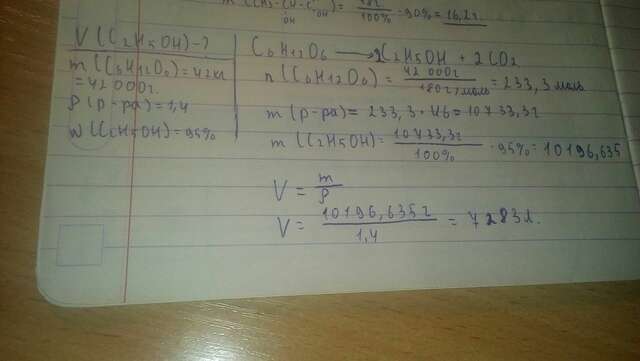 m (CH3-CH-C OH) = 18г / 100% · 90% = 16,2г.
OH
V (C2H5OH) - ?
m (C6H12O6) = 42кг
= 42 000г.
ρ (р-ра) = 1,4
w (C2H5OH) = 95%
C6H12O6 → 2C2H5OH + 2CO2
n (C6H12O6) = 42 000г / 180г/моль = 233,3 моль
m (р-ра) = 233,3 · 46 = 10 733,3г
m (C2H5OH) = 10 733,3г / 100% · 95% = 10196,635
V = m / ρ
V = 10196,635г / 1,4 = 7283л.